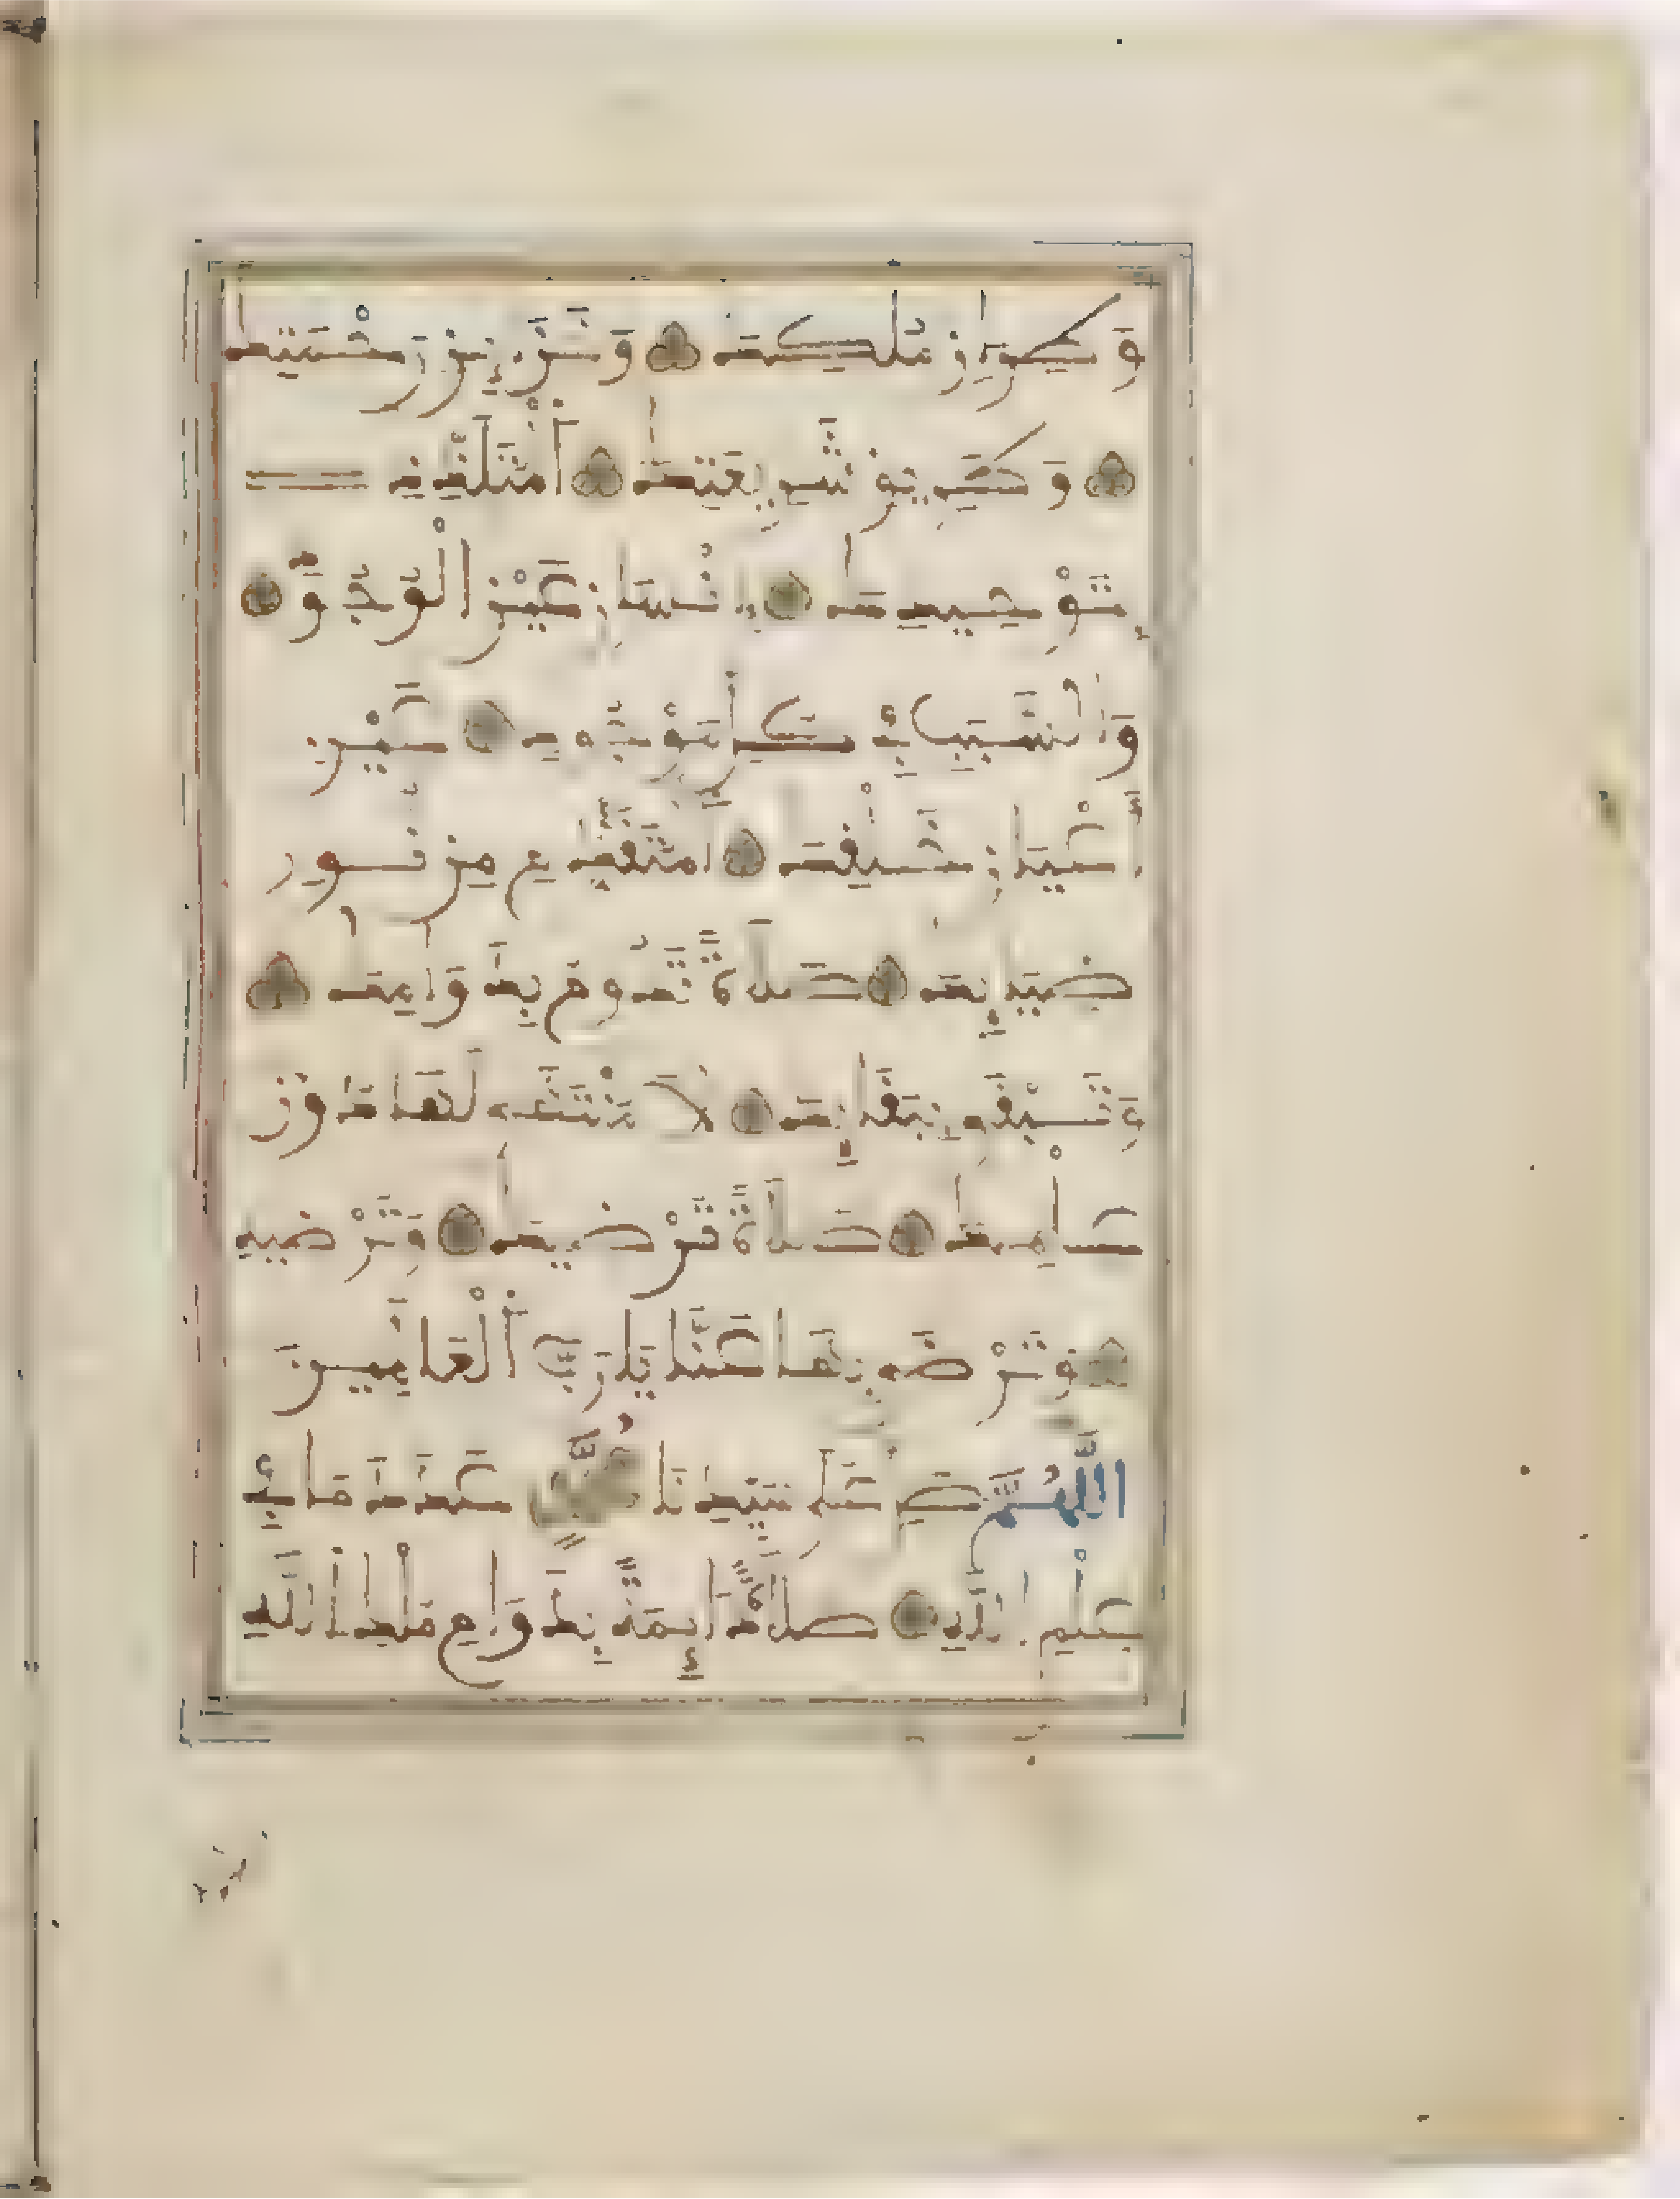 وطراز ملكك وخزائن رحمتك
وطريق شريعتك المتلذذ
بتوحيدك إنسان عين الوجود
والسبب في كل موجود عين
أعيان خلقك المتقدم من نور
ضيائك صلاة تدوم بدوامك
وتبقى ببقائك لا منتهى لها دون
علمك صلاة ترضيك وترضيه
وترضى بها عنا يا رب العالمين
اللهم صل على سيدنا محمد عدد ما في
علم الله صلاة دائمة بدوام ملك الله